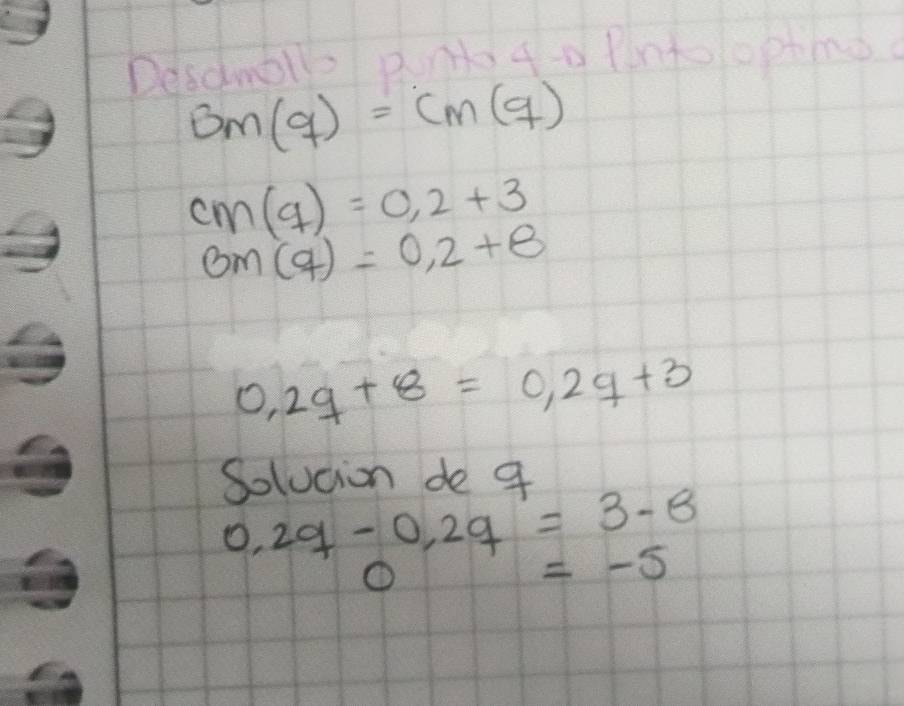 Desarrollo punto 4 → Punto optimo
Bm(q) = Cm(q)
cm(q) = 0,2 + 3
Bm(q) = 0,2 + 8
0,2q + 8 = 0,2q + 3
Solucion de q
0,2q - 0,2q = 3 - 8
0 = -5